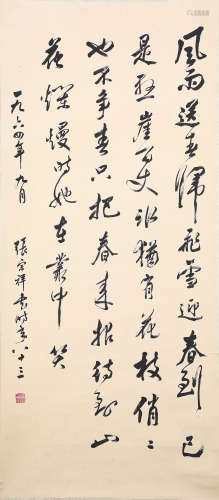 風雨送春歸飛雪迎春到已
是懸崖百丈冰猶有花枝俏〻
也不爭春只把春來報待到山
花爛熳時她在叢中笑
一九六四年九月
張宗祥書時年八十三